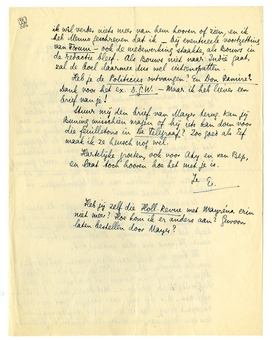 ik wil verder niets meer van hem hooren of zien, en ik
heb Menno geschreven dat ik – bij eventueele voortzetting
van Forum – ook de medewerking staakte, als Bouws in
de redactie bleef. Als Bouws niet naar Indië gaat,
zal de boel daarmee dus wel uiteenspatten.
Heb je de Politicus ontvangen? En Don Ramiro?
Dank voor het ex. D.G.W. – Maar ik had liever een
brief van je!
Stuur mij den brief van Mayer terug. Kan zij
misschien vragen of hij iets kan doen voor
die feuilletons in De Telegraaf? Zoo gaat als lef
maak ik ze heusch nog wel.
Hartelijke groeten, ook voor Ahy en van Bep,
en laat toch hooren hoe het met je is.
Je
E.
Heb jij zelf die Holl. Revue met Mayréna erin
niet meer? Hoe kom ik er anders aan? Gewoon
laten bestellen door Mayer?